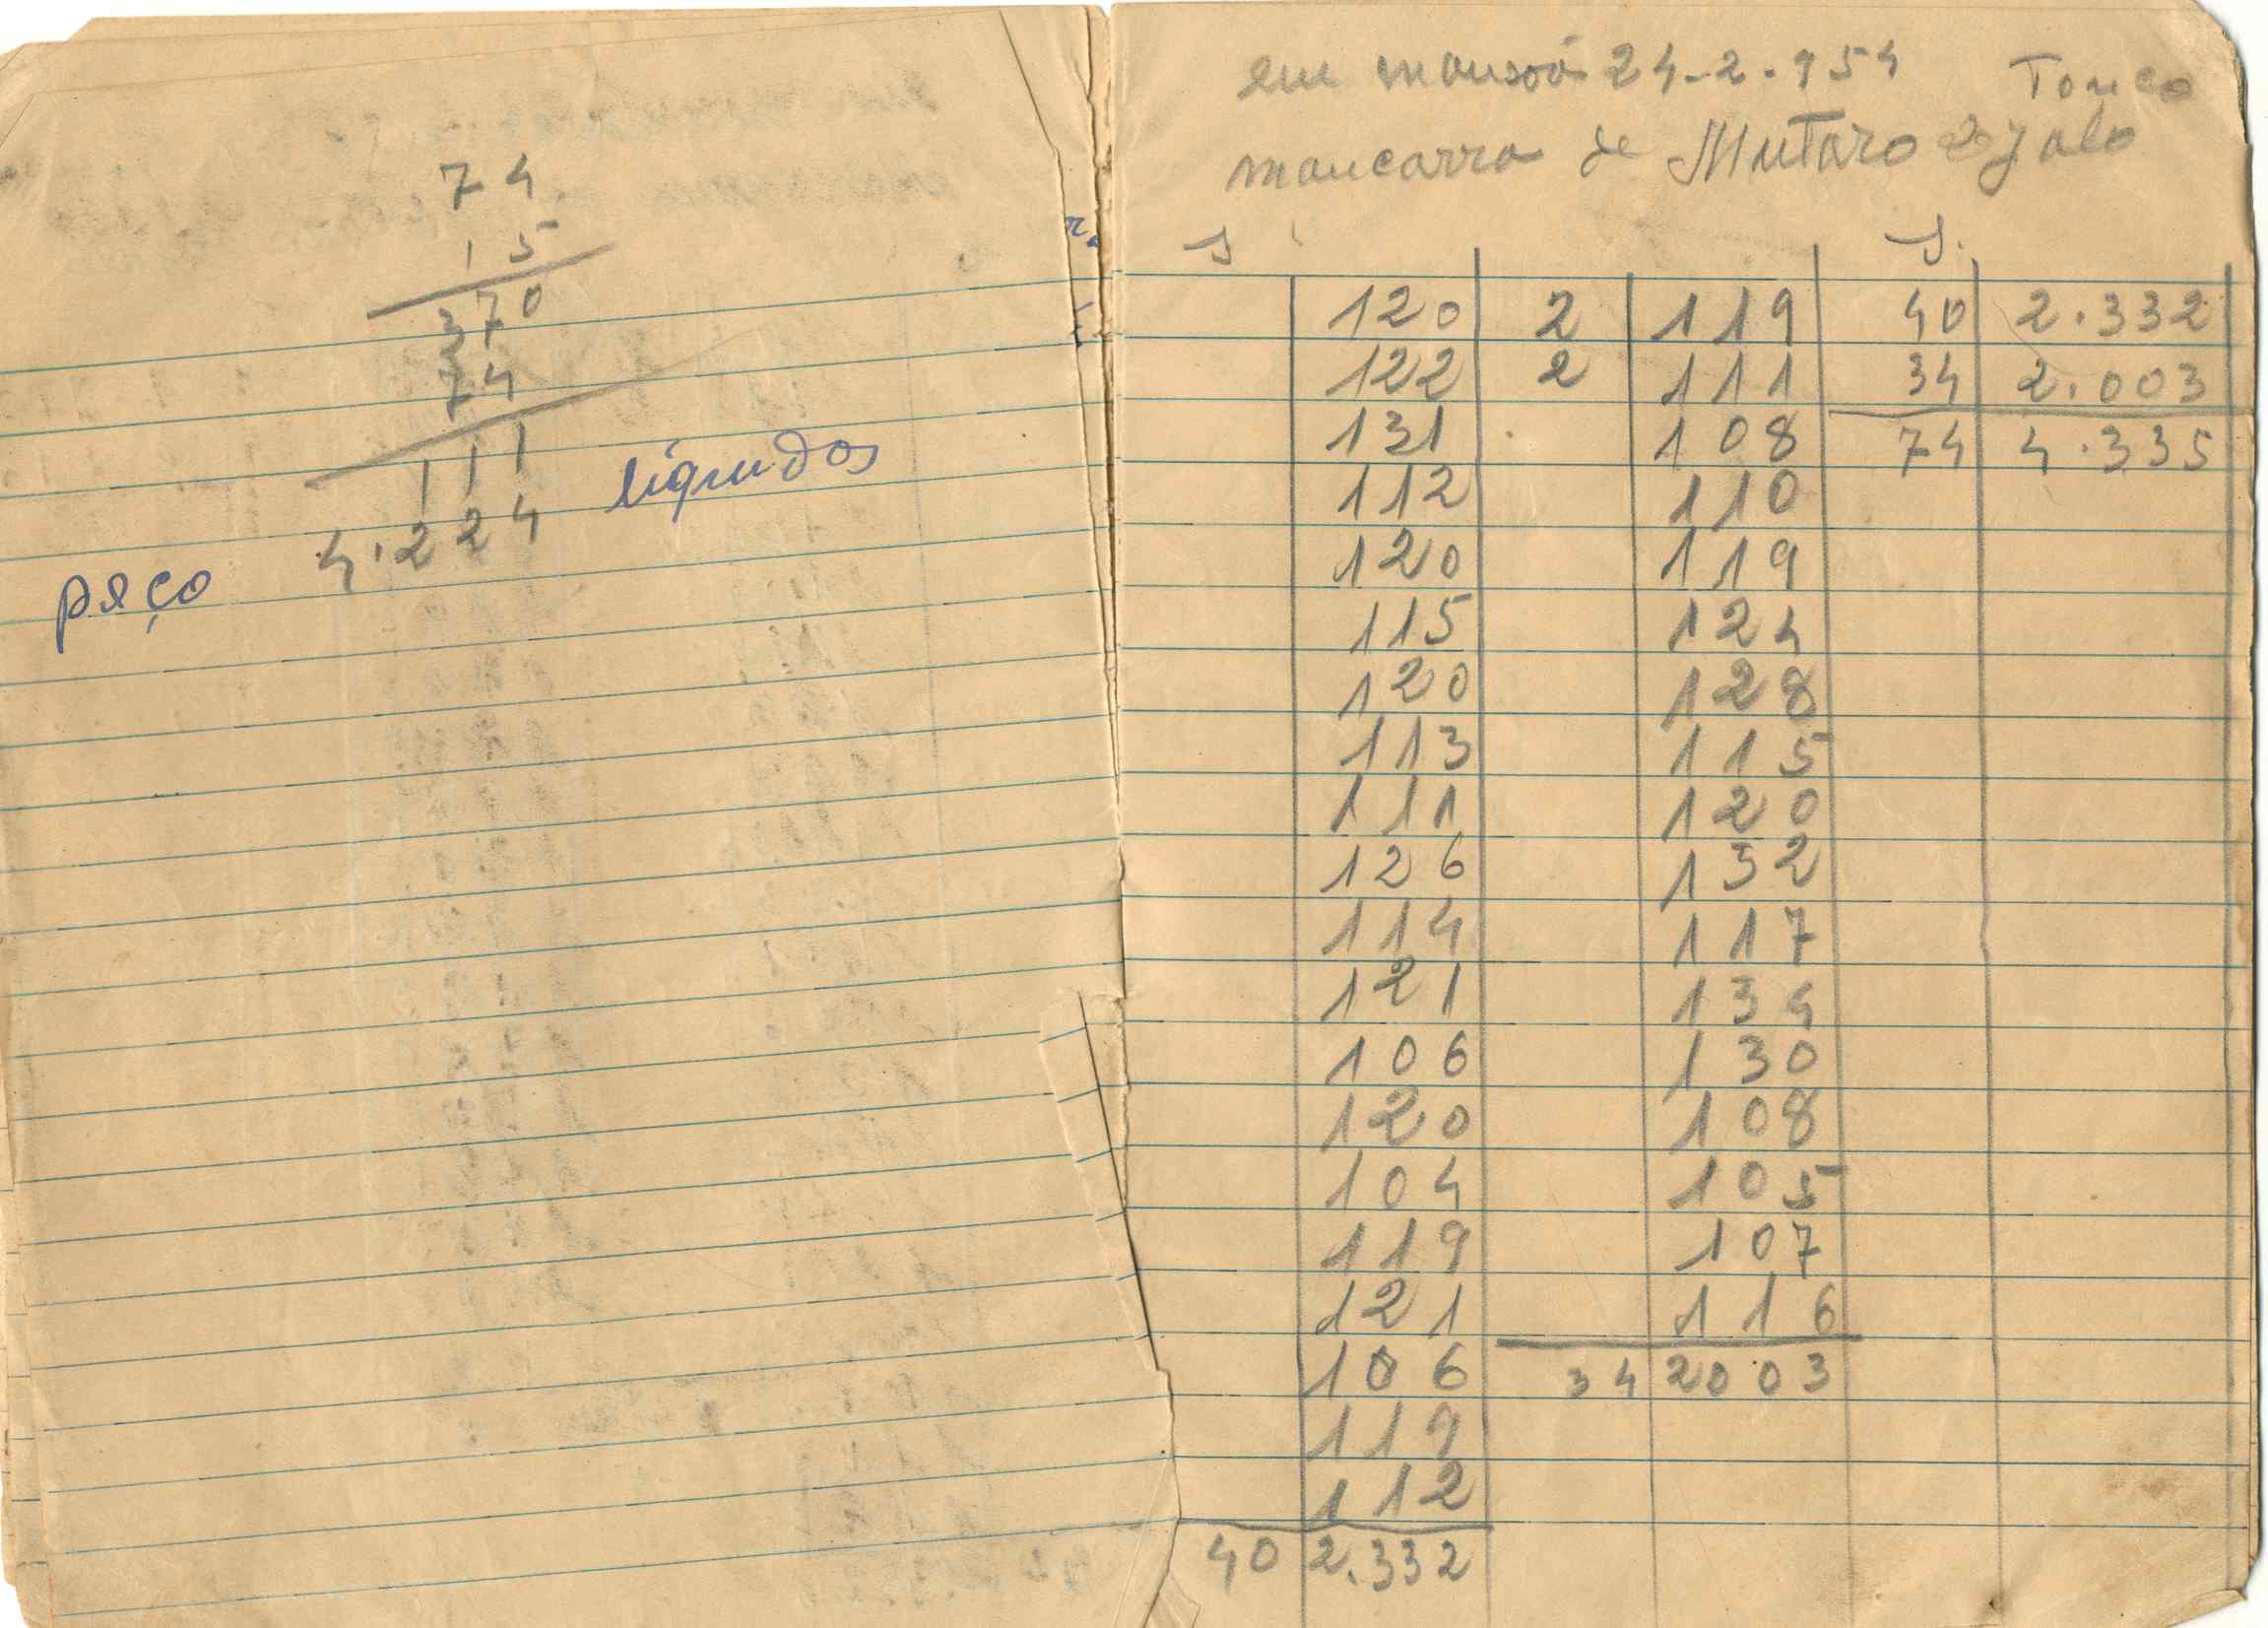 74
15
370
74
111
4.224 líquidos
peço
em mansoá 24-2-954 Tonco
mancarra de Mutaro Djalo
S S.
120 2 119 40 2.332
122 2 111 34 2.003
131 108 74 4.335
112 110
120 119
115 124
120 128
113 115
111 120
126 132
114 117
121 134
106 130
120 108
104 105
119 107
121 116
106 34 2003
119
112
40 2.332